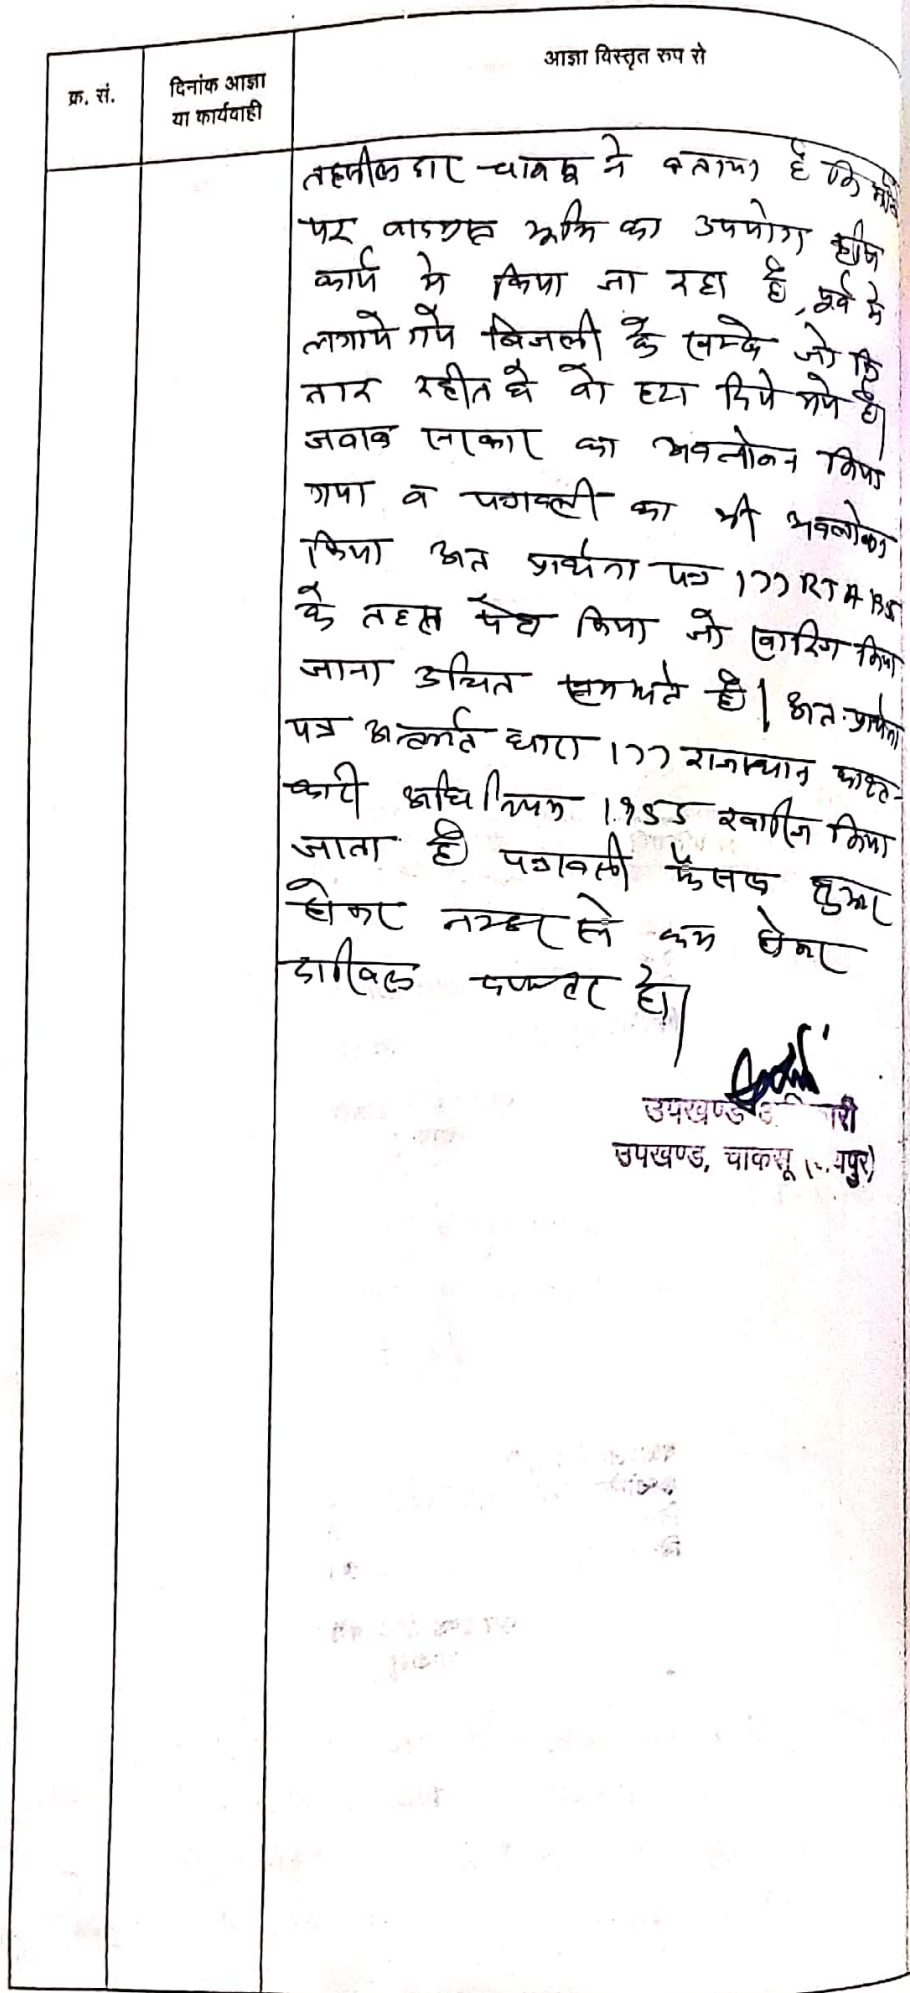 क्र. सं.
दिनांक आज्ञा
या कार्यवाही
आज्ञा विस्तृत रूप से
तहसीलदार चाकसू ने बताया है कि मौके
पर वादग्रस्त भूमि का उपयोग कृषि
कार्य मे किया जा रहा है, पूर्व मे
लगाये गये बिजली के खम्बे जो कि
तार रहीत थे वो हटा दिये गये है।
जवाब सरकार का अवलोकन किया
गया व पत्रावली का भी अवलोकन
किया अत प्रार्थना पत्र 177 RTA 1955
के तहत पेश किया जो खारिज किया
जाना उचित समझते है। अत: प्रार्थना
पत्र अन्तर्गत धारा 177 राजस्थान काश्त-
कारी अधिनियम 1955 खारीज किया
जाता है पत्रावली फैसल शुमार
होकर नम्बर से कम होकर
दाखिल दफ्तर हो।
उपखण्ड
उपखण्ड, चाकसू